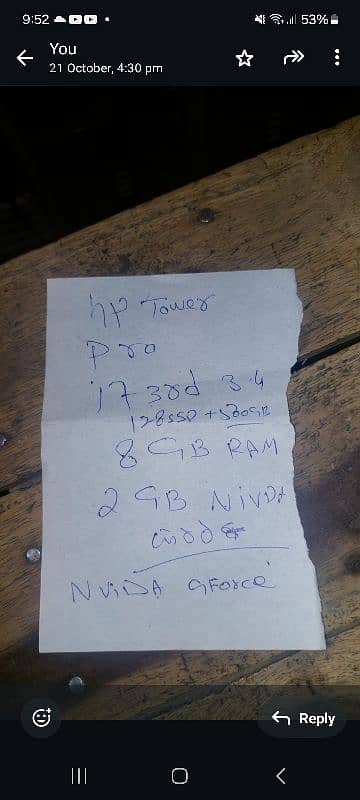 9:52
53%
You
21 October, 4:30 pm
hp Tower
Pro
i7 3rd 3.4
128SSD + 500GB
8 GB RAM
2 GB NIVDA
NVIDA GForce
Reply